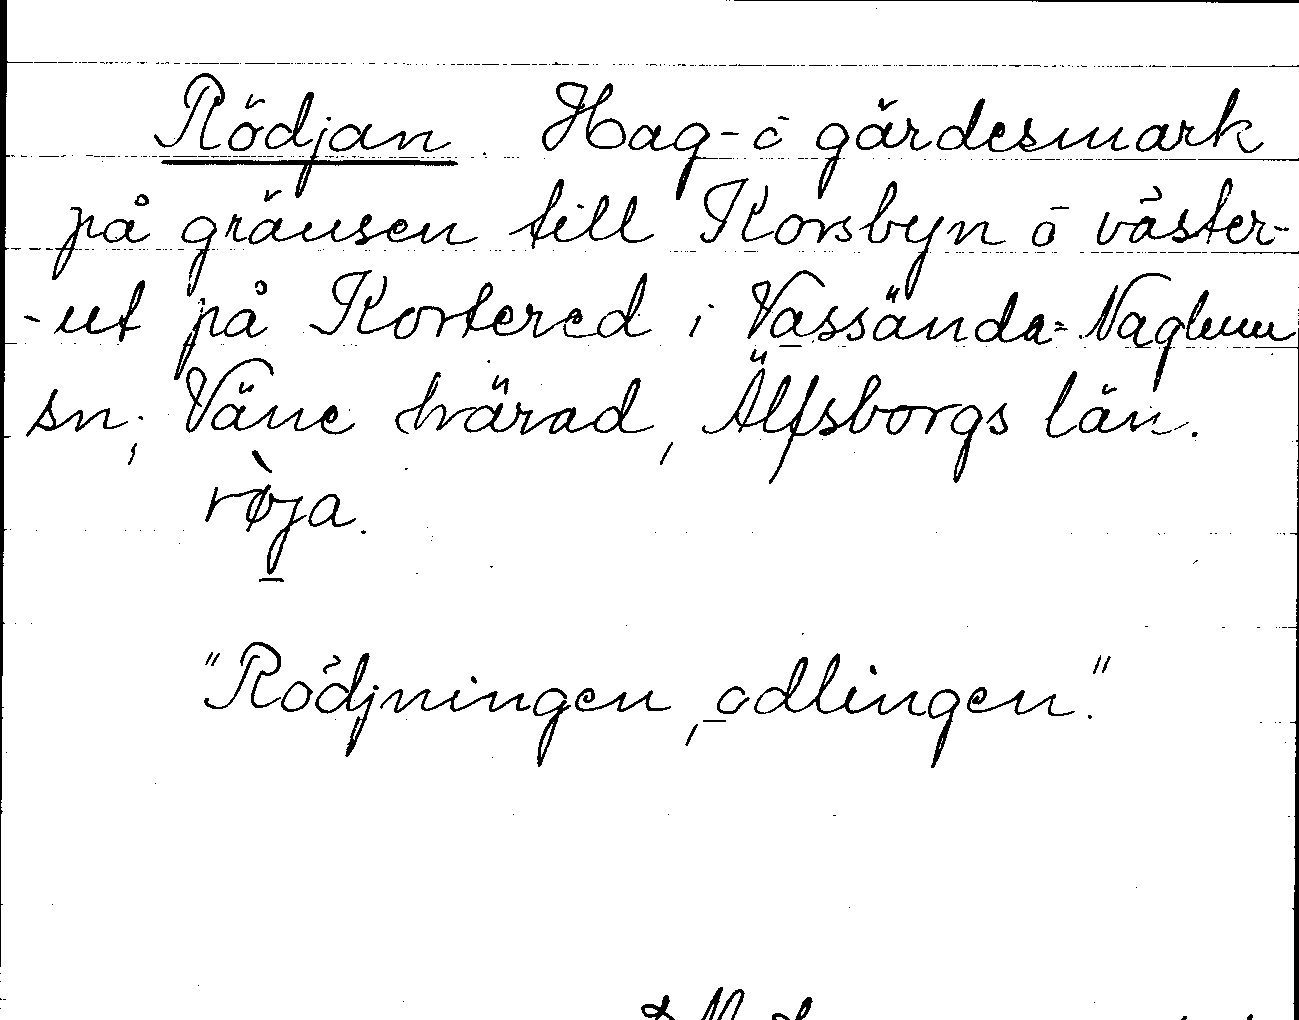 Rödjan. Hag- o gärdesmark
på gränsen till Korsbyn o väster-
-ut på Kortered i Vassända-Naglum
sn, Väne härad, Älfsborgs län.
rø̀ja.
"Rödjningen, odlingen."